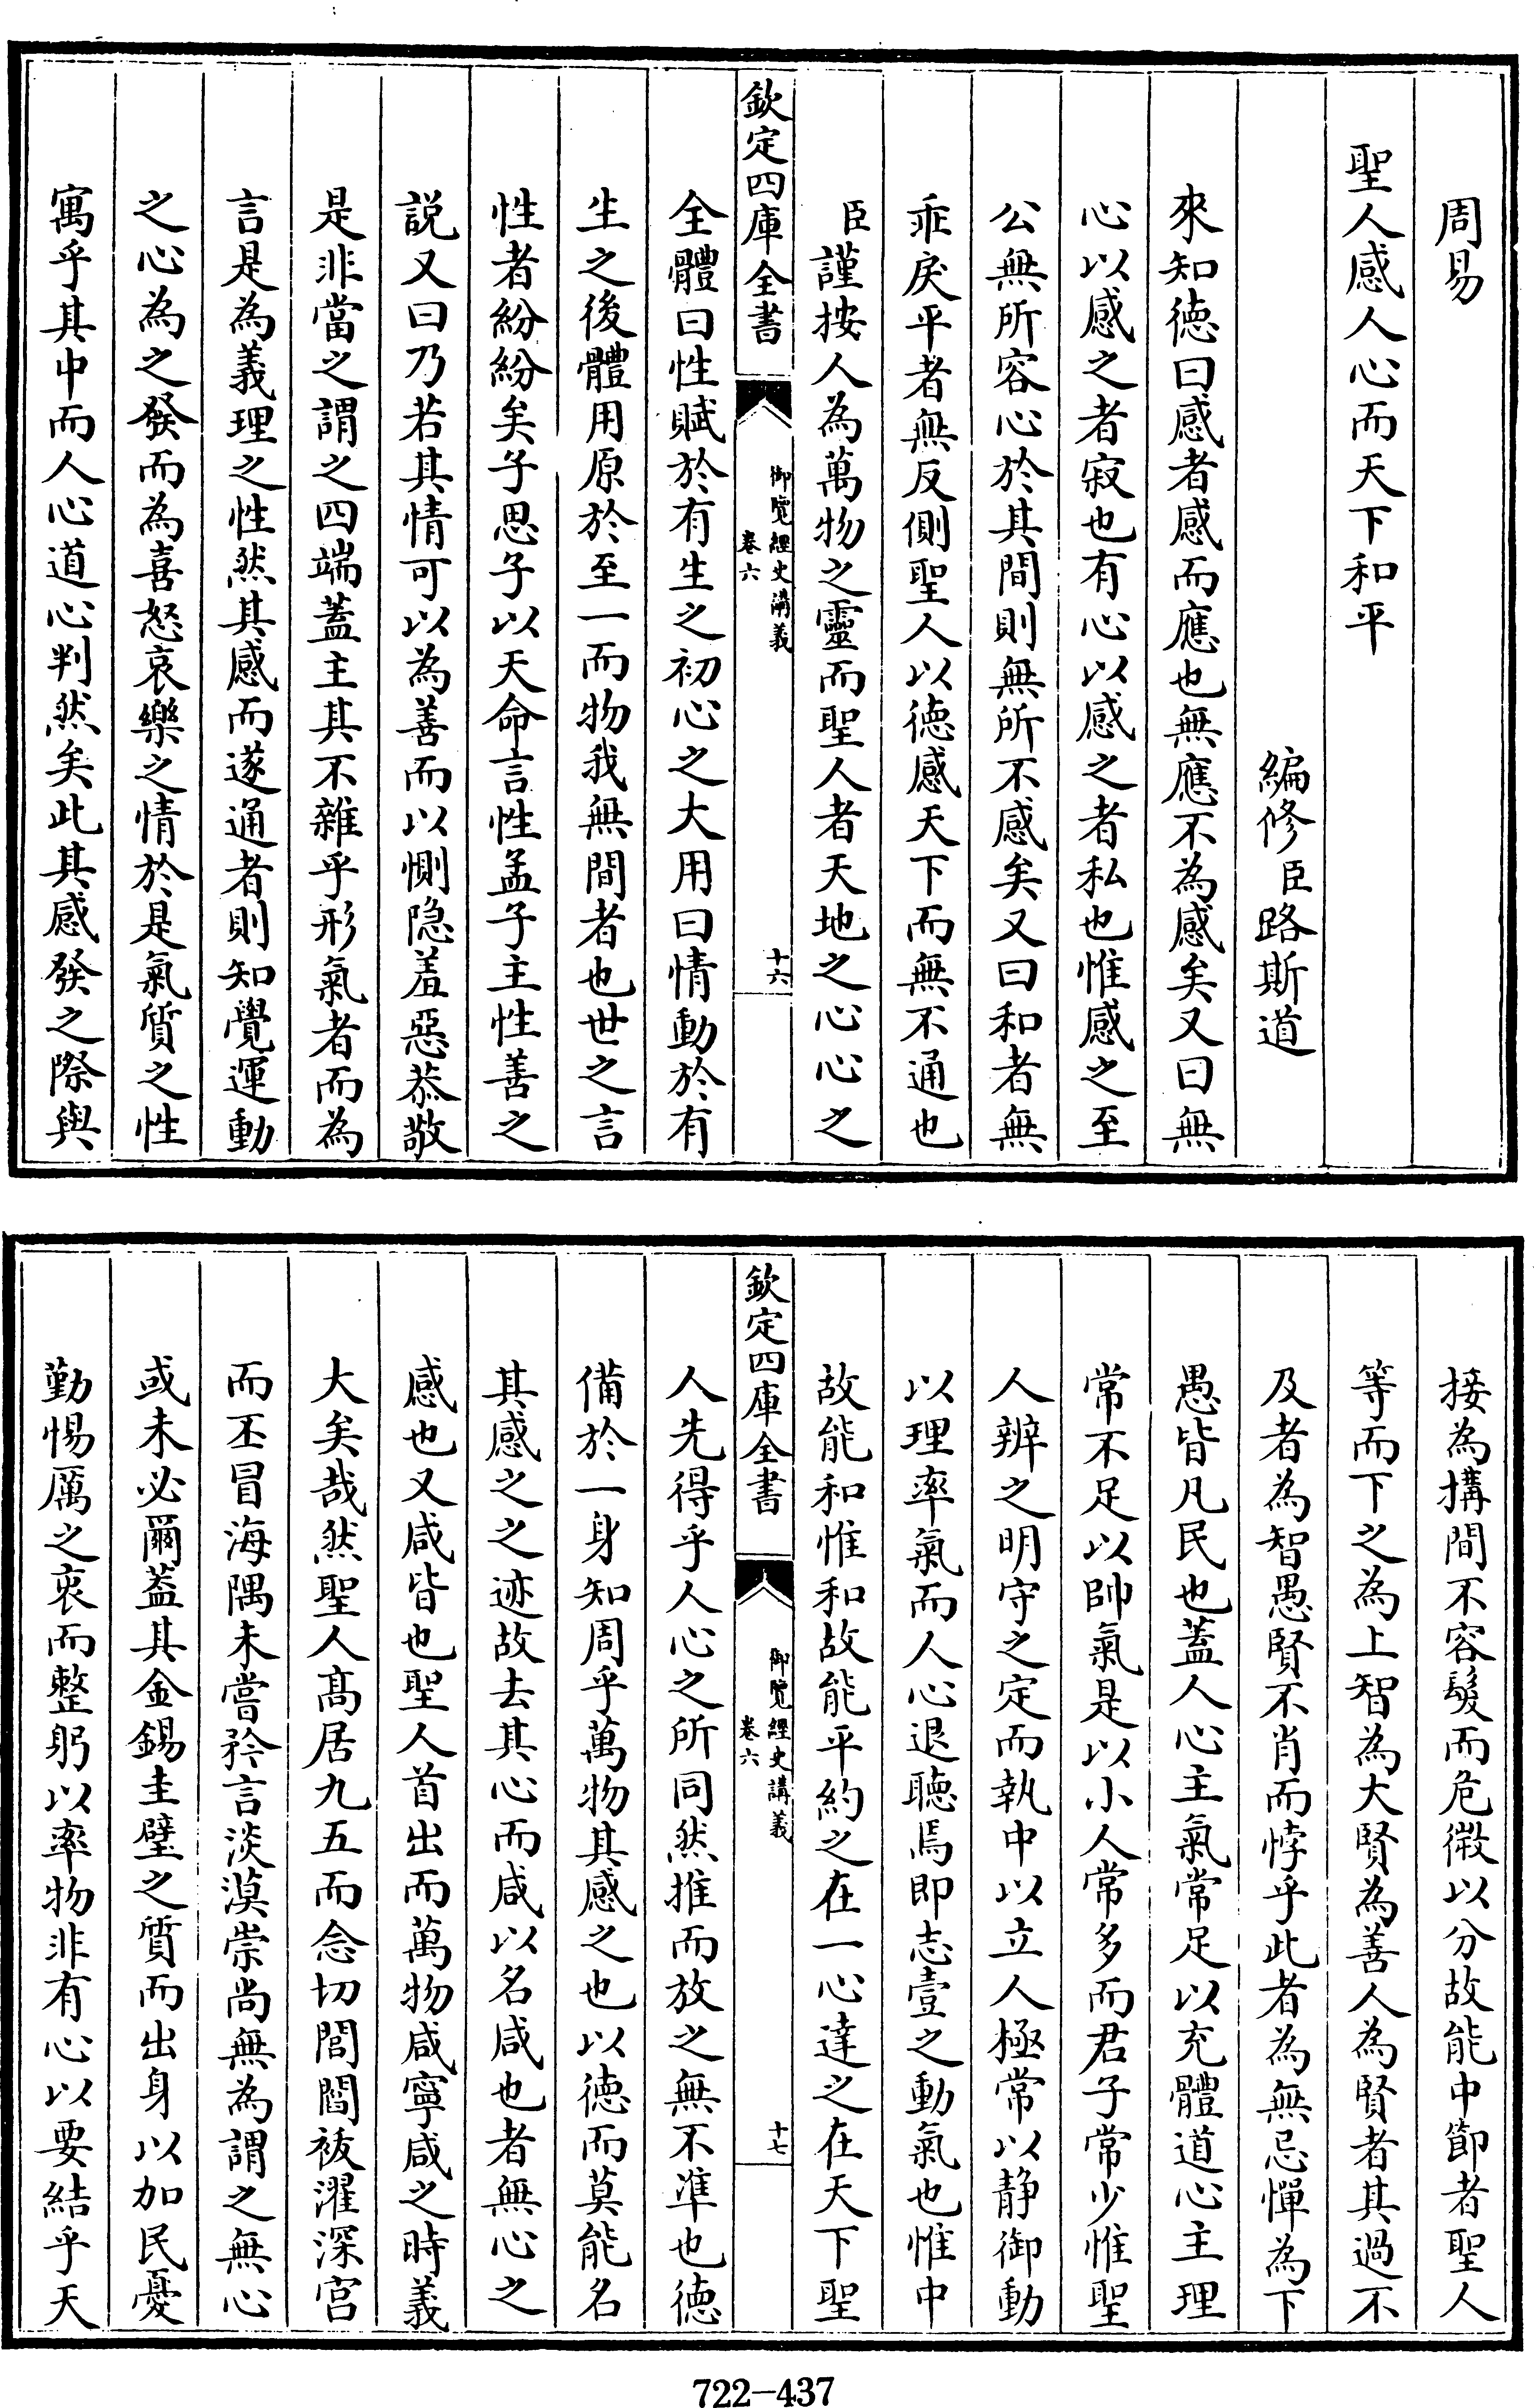 周易
聖人感人心而天下和平
編修臣路斯道
來知德曰感者感而應也無應不為感矣又曰無
心以感之者寂也有心以感之者私也惟感之至
公無所容心於其間則無所不感矣又曰和者無
乖戾平者無反側聖人以德感天下而無不通也
臣謹按人為萬物之靈而聖人者天地之心心之
欽定四庫全書
御覽經史講義
卷六
十六
全體曰性賦於有生之初心之大用曰情動於有
生之後體用原於至一而物我無間者也世之言
性者紛紛矣子思子以天命言性孟子主性善之
説又曰乃若其情可以為善而以惻隠羞惡恭敬
是非當之謂之四端蓋主其不雜乎形氣者而為
言是為義理之性然其感而遂通者則知覺運動
之心為之發而為喜怒哀樂之情於是氣質之性
寓乎其中而人心道心判然矣此其感發之際與
接為搆間不容髮而危微以分故能中節者聖人
等而下之為上智為大賢為善人為賢者其過不
及者為智愚賢不肖而悖乎此者為無忌憚為下
愚皆凡民也蓋人心主氣常足以充體道心主理
常不足以帥氣是以小人常多而君子常少惟聖
人辨之明守之定而執中以立人極常以靜御動
以理率氣而人心退聽焉即志壹之動氣也惟中
故能和惟和故能平約之在一心達之在天下聖
欽定四庫全書
御覽經史講義
卷六
十七
人先得乎人心之所同然推而放之無不準也德
備於一身知周乎萬物其感之也以德而莫能名
其感之之迹故去其心而咸以名咸也者無心之
感也又咸皆也聖人首出而萬物咸寧咸之時義
大矣哉然聖人髙居九五而念切閭閻祓濯深宫
而丕冒海隅未嘗矜言淡漠崇尚無為謂之無心
或未必爾蓋其金錫圭璧之質而出身以加民憂
勤惕厲之衷而整躬以率物非有心以要結乎天
722-437